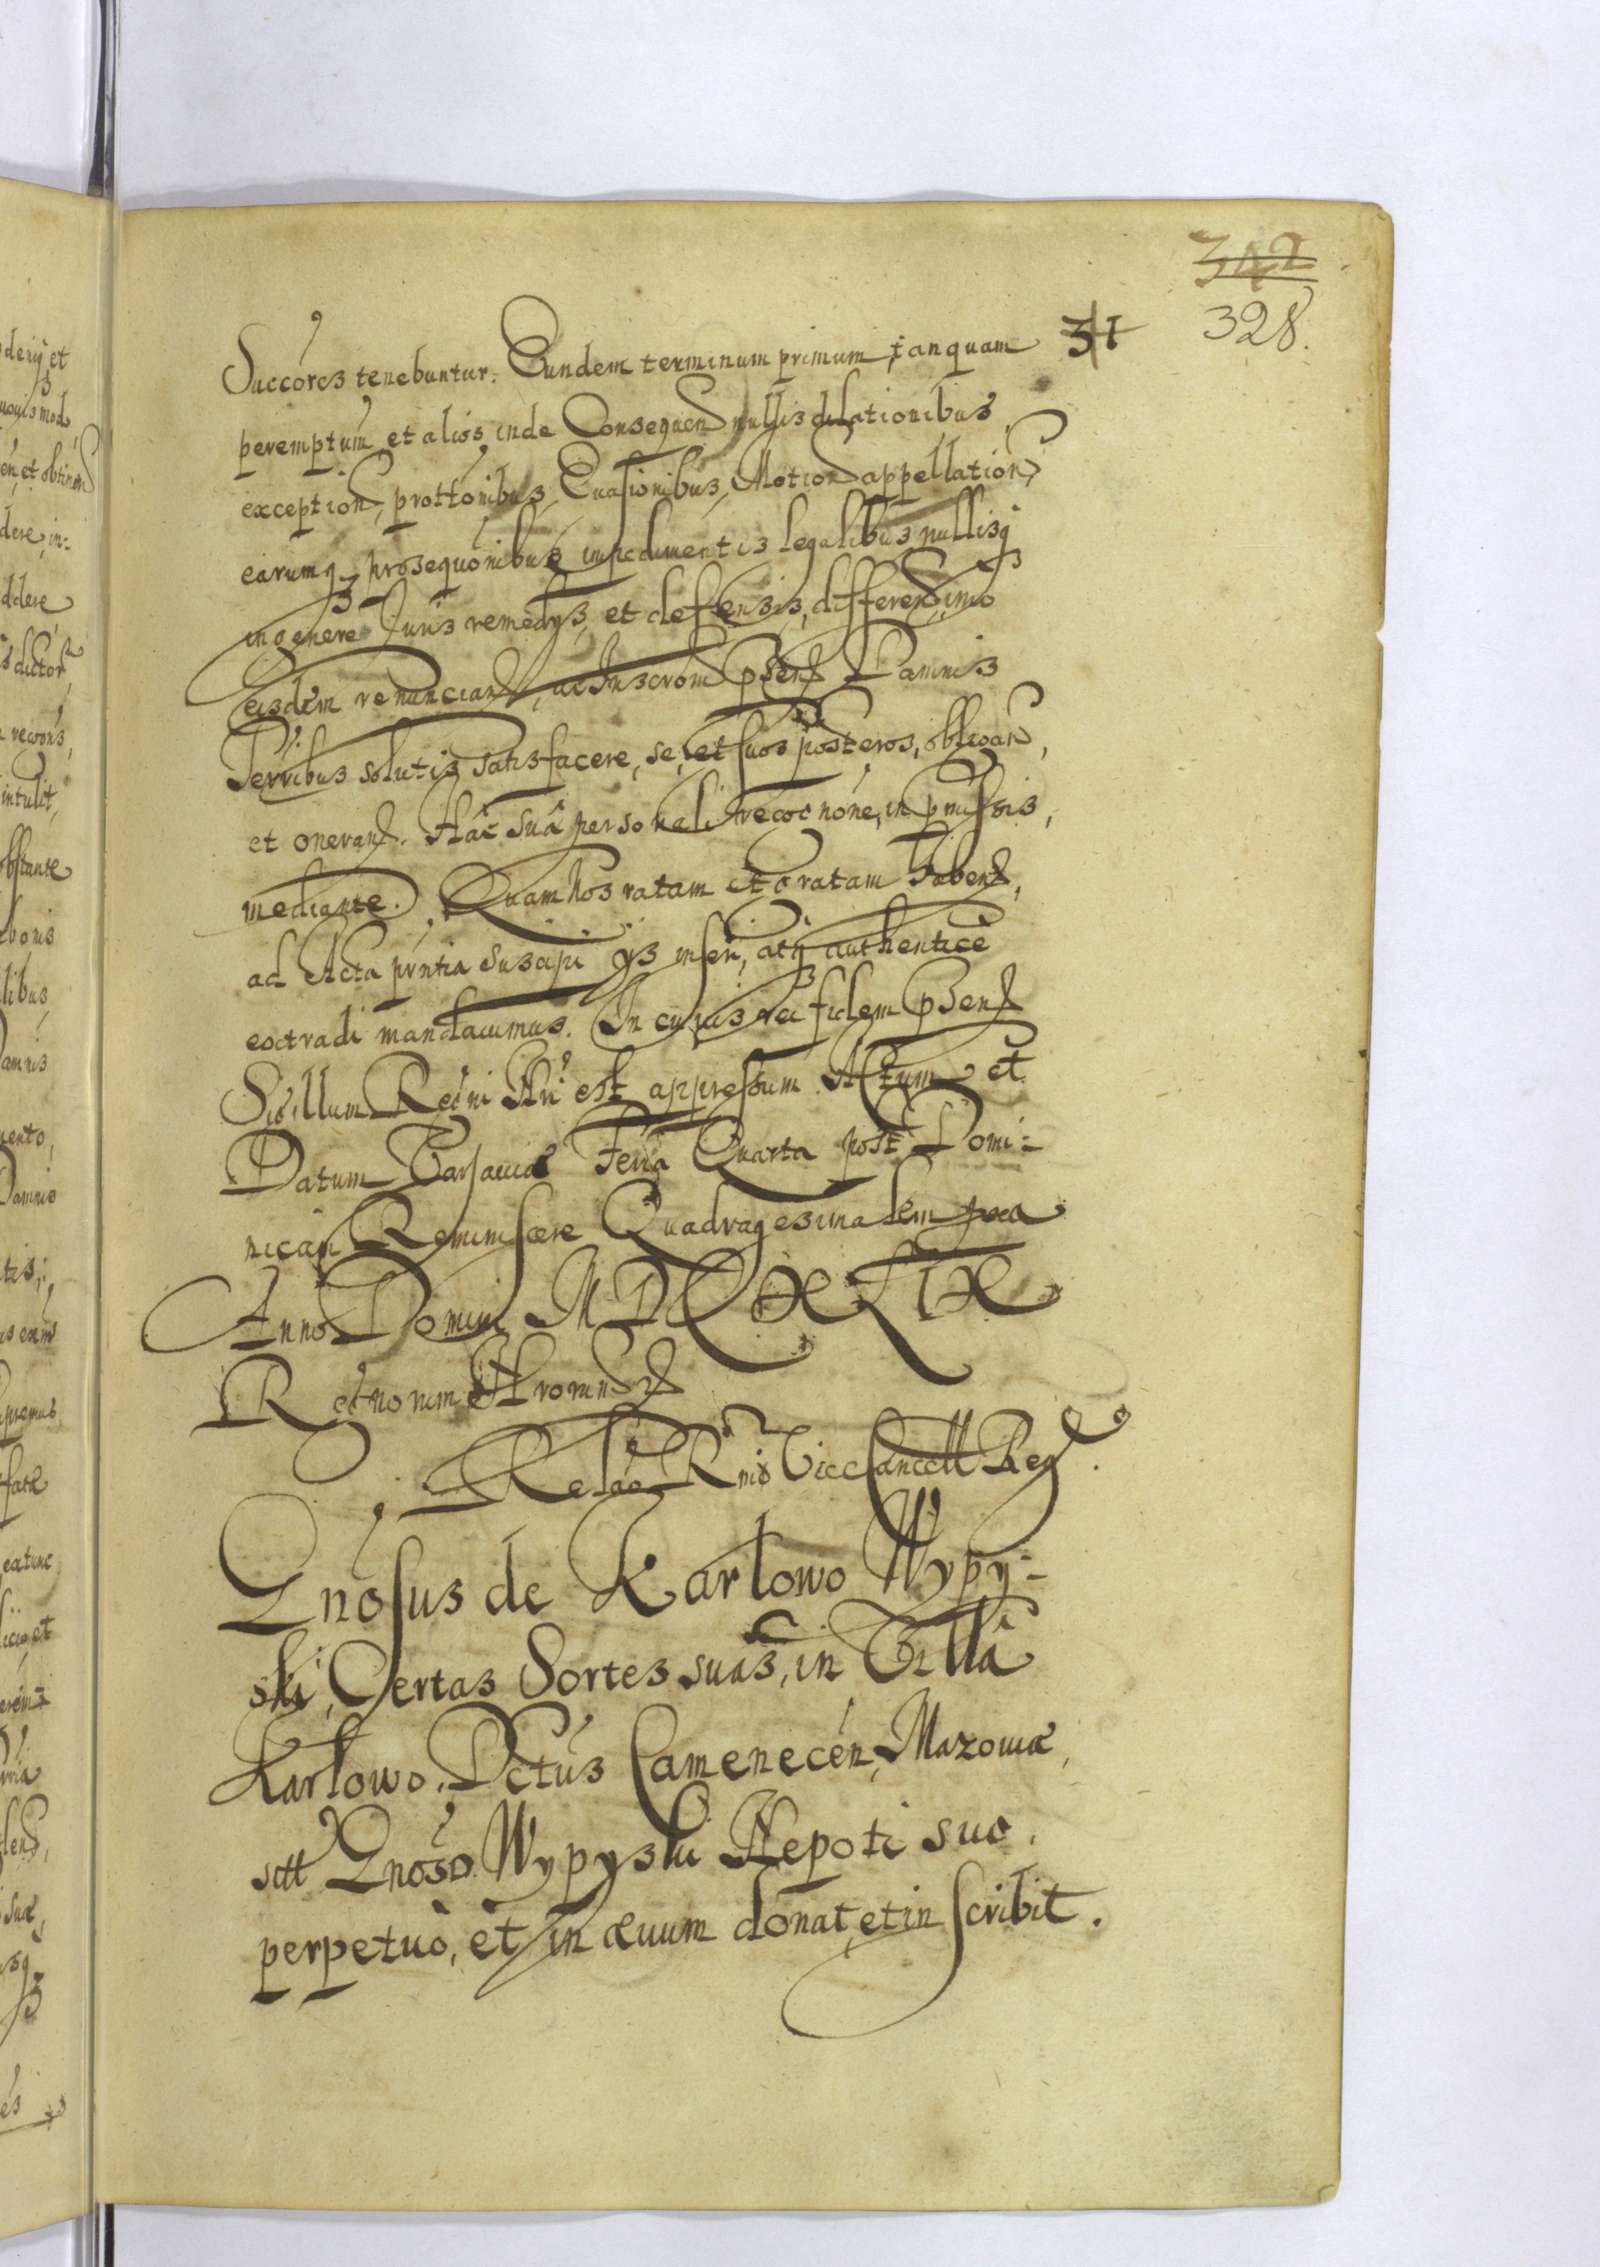 342
328.
31
Succores tenebuntur. Eundem terminum primum, tanquam
peremptum, et alios inde Consequen nullis dilationibus,
exception, prottonibus, Evasionibus, Motion appellation,
earumq prosequonibus impedimentis legalibus nullisq
in genere Juris remedys, et deffensis, differend, imo
eisdem renuncian, ac Inscroni psen Damnis
Terribus solutis satisfacere, se, et suos posteros, obligan,
et oneran. Hac sua personali recognone, in pmissis,
mediante. Quam nos ratam et gratam haben,
ad Acta pnntia suscipi ys inseri, atq authentice
extradi mandavimus. In cujus rei fidem psen
Sigillum Regni Nri est appressum. Actum et
Datum Varsaviae Feria Quarta post Domi-
nicam Reminiscere Quadragesimalem pxa
Anno Domini MDCXLIX
Regnorum Nrorum
Relao Rndi Vicecancell Reg.
Gnosus de Karlowo Wypy-
ski, Certas Sortes suas, in Villa
Karlowo, Dctus Camenecen, Mazoviae,
sitt Gnoso Wypyski Nepoti suo,
perpetuo, et in aevum donat, et inscribit.